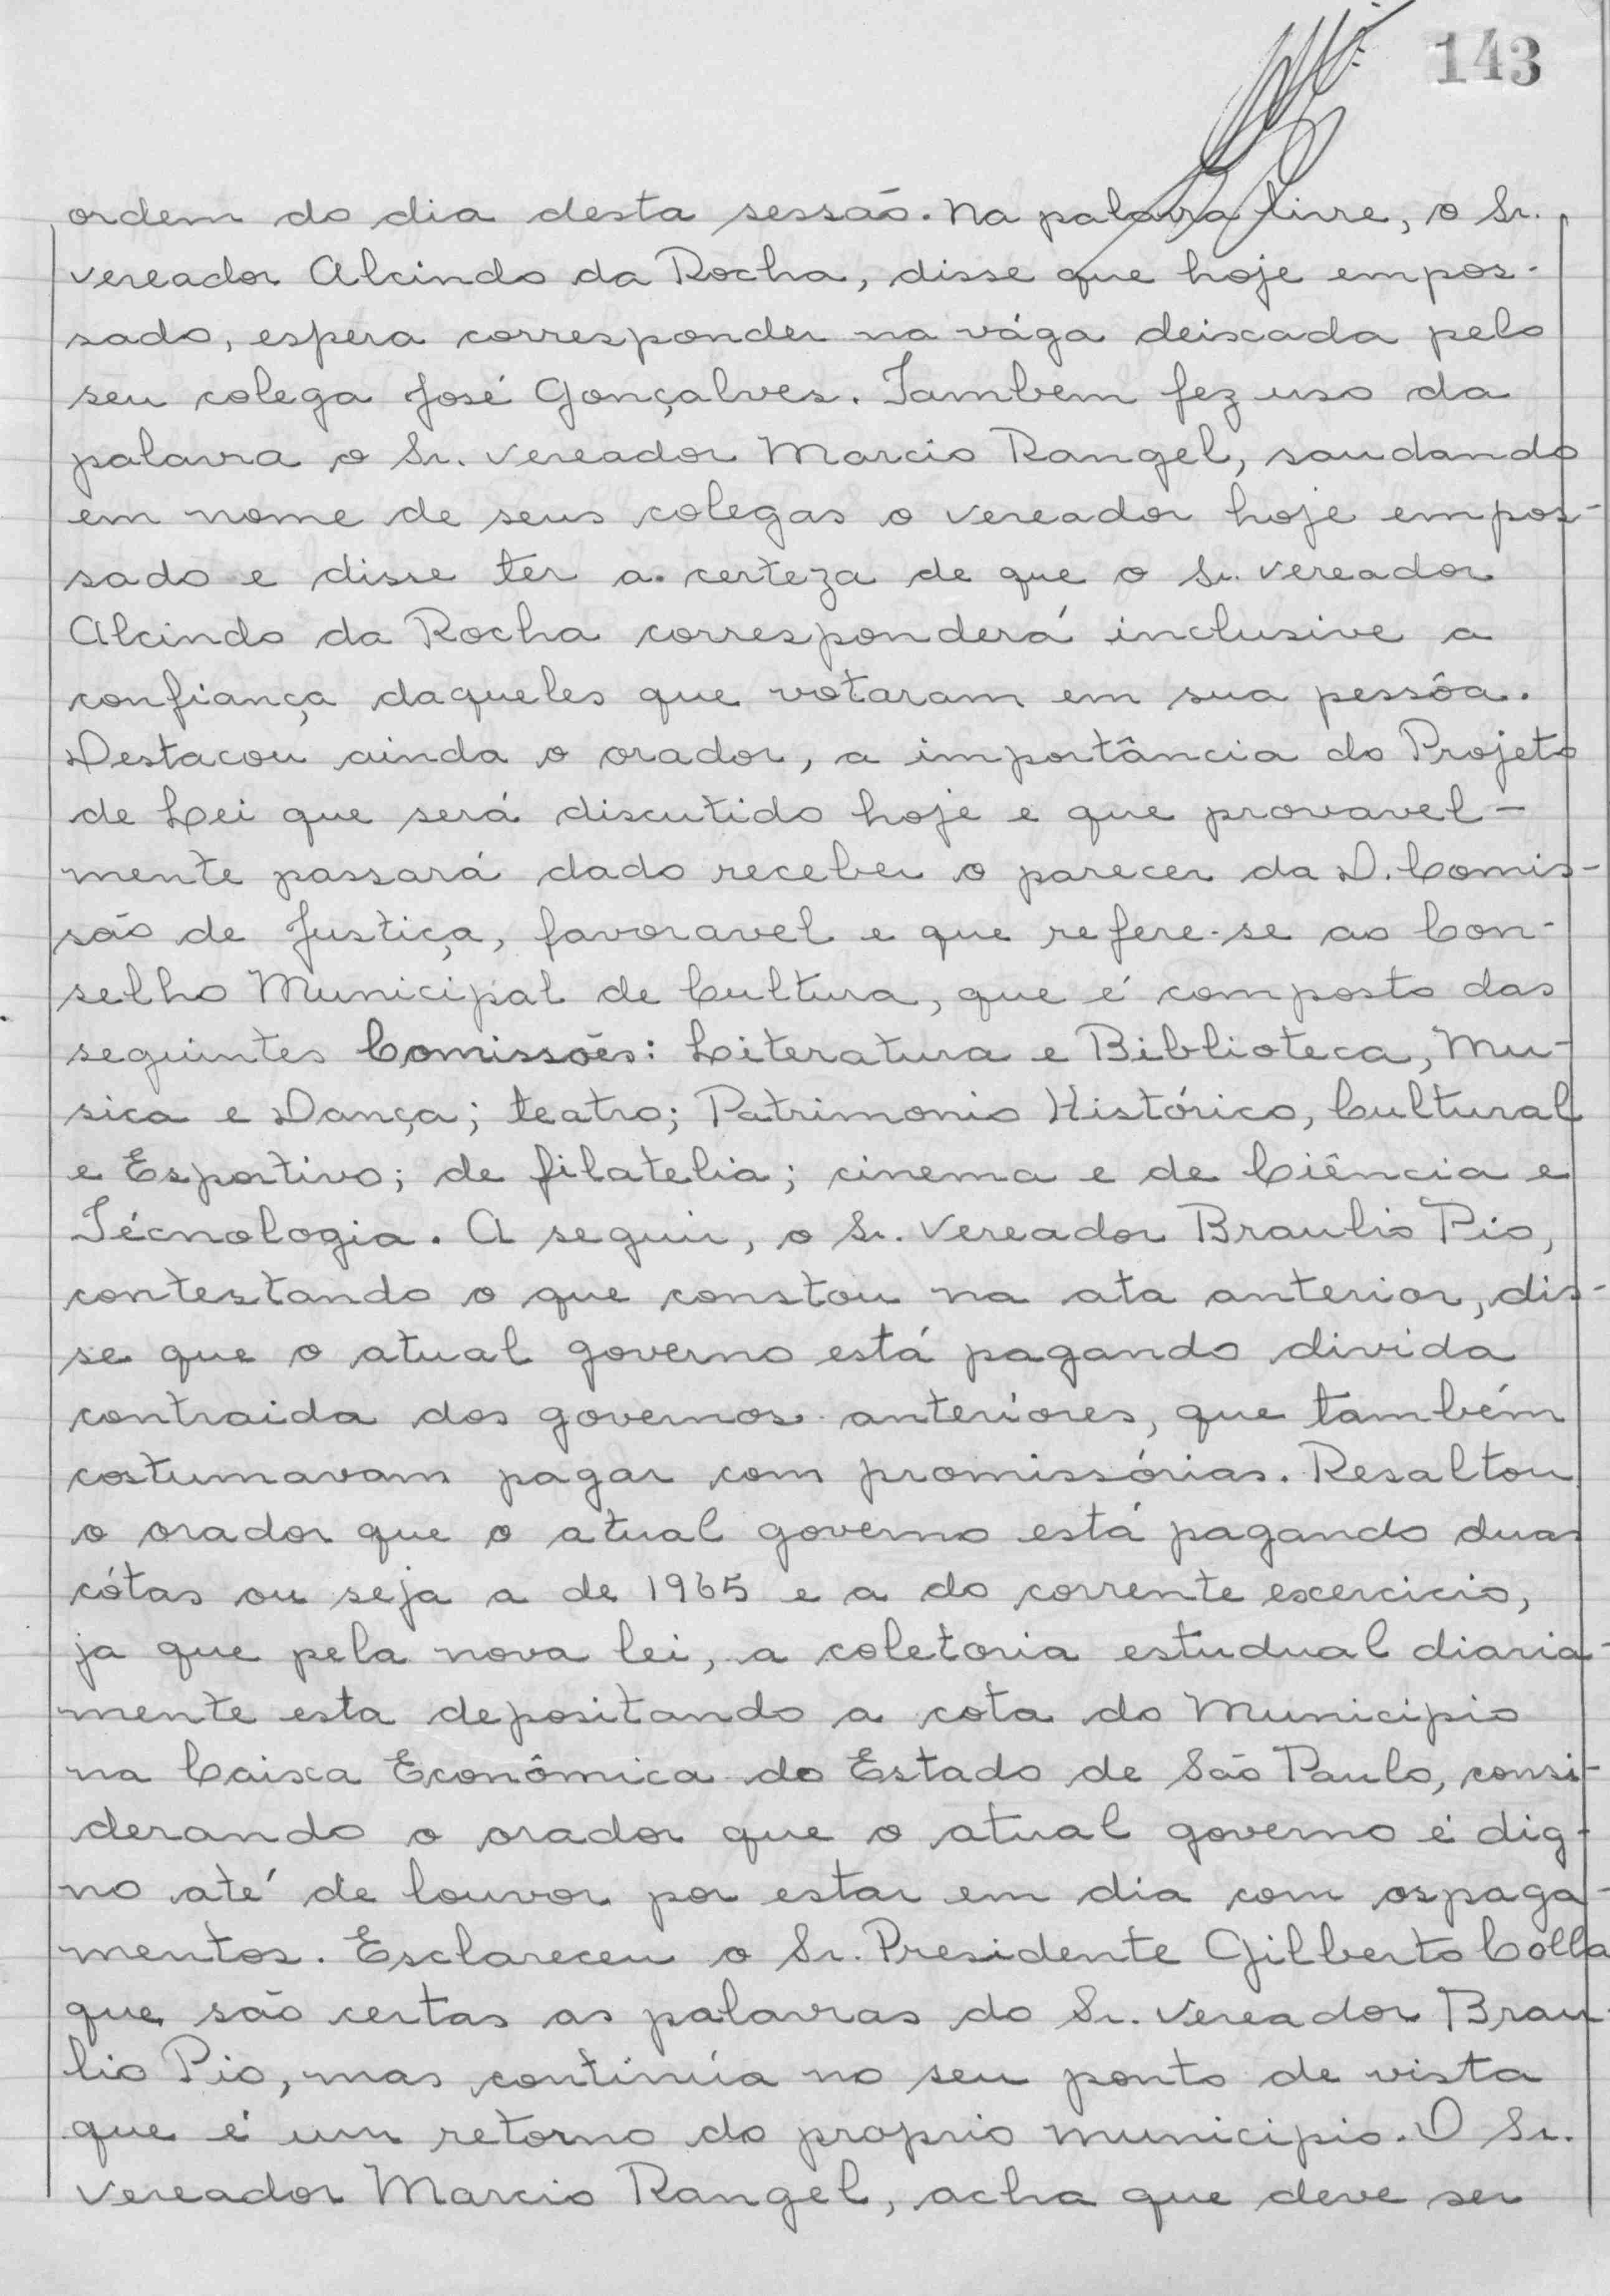 143
ordem do dia desta sessão. Na palavra livre, o Sr.
vereador Alcindo da Rocha, disse que hoje empos-
sado, espera corresponder na vága deixada pelo
seu colega José Gonçalves. Tambem fez uso da
palavra o Sr. vereador Marcio Rangel, saudando
em nome de seus colegas o vereador hoje empos-
sado e disse ter a certeza de que o Sr. vereador
Alcindo da Rocha corresponderá inclusive a
confiança daqueles que votaram em sua pessôa.
Destacou ainda o orador, a importância do Projeto
de Lei que será discutido hoje e que provavel-
mente passará dado receber o parecer da D. Comis-
são de Justiça, favoravel e que refere-se ao Con-
selho Municipal de Cultura, que é composto das
seguintes Comissões: Literatura e Biblioteca, Mu-
sica e Dança; teatro; Patrimonio Histórico, Cultural
e Esportivo; de filatelia; cinema e de Ciência e
Técnologia. A seguir, o Sr. Vereador Braulio Pio,
contestando o que constou na ata anterior, dis-
se que o atual governo está pagando divida
contraida dos governos anteriores, que também
costumavam pagar com promissórias. Resaltou
o orador que o atual governo está pagando duas
cótas ou seja a de 1965 e a do corrente exercicio,
ja que pela nova lei, a coletoria estudual diaria-
mente esta depositando a cota do Municipio
na Caixa Econômica do Estado de São Paulo, consi-
derando o orador que o atual governo é dig-
no até de louvor por estar em dia com os paga-
mentos. Esclareceu o Sr. Presidente Gilberto Colla
que são certas as palavras do Sr. Vereador Brau-
lio Pio, mas continúa no seu ponto de vista
que é um retorno do proprio municipio. O Sr.
Vereador Marcio Rangel, acha que deve ser